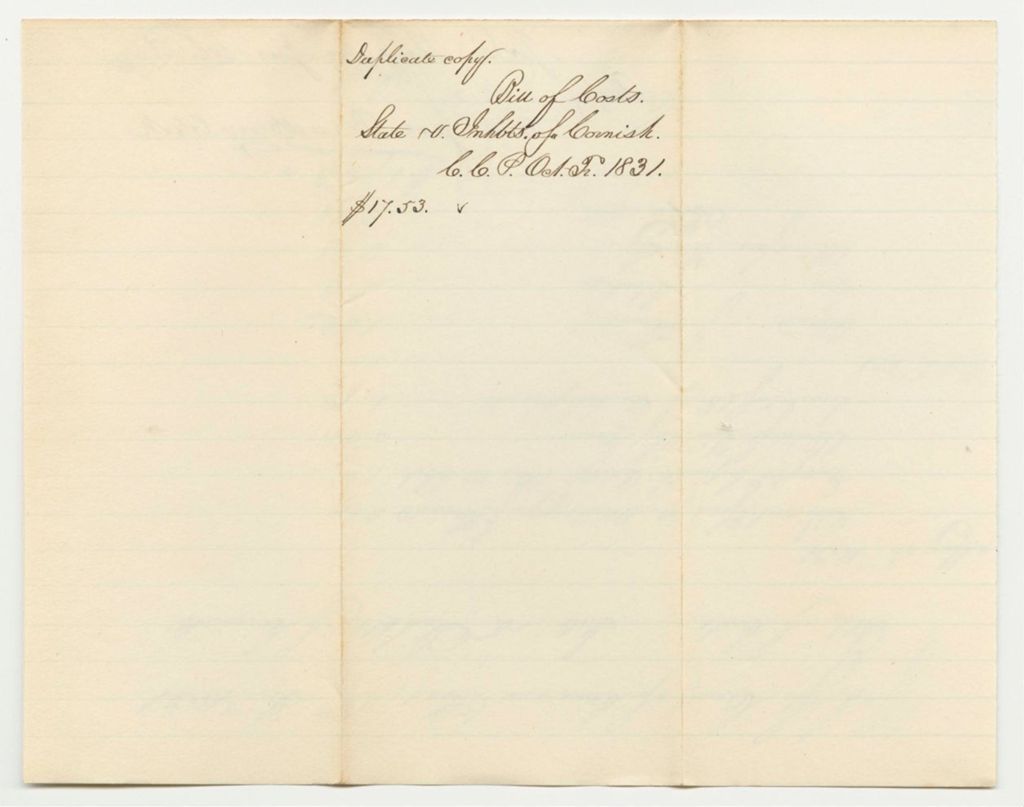 Duplicate copy.
Bill of Costs.
State v. Inhbts. of Cornish.
C. C. P. Oct. Tr. 1831.
$17.53. v